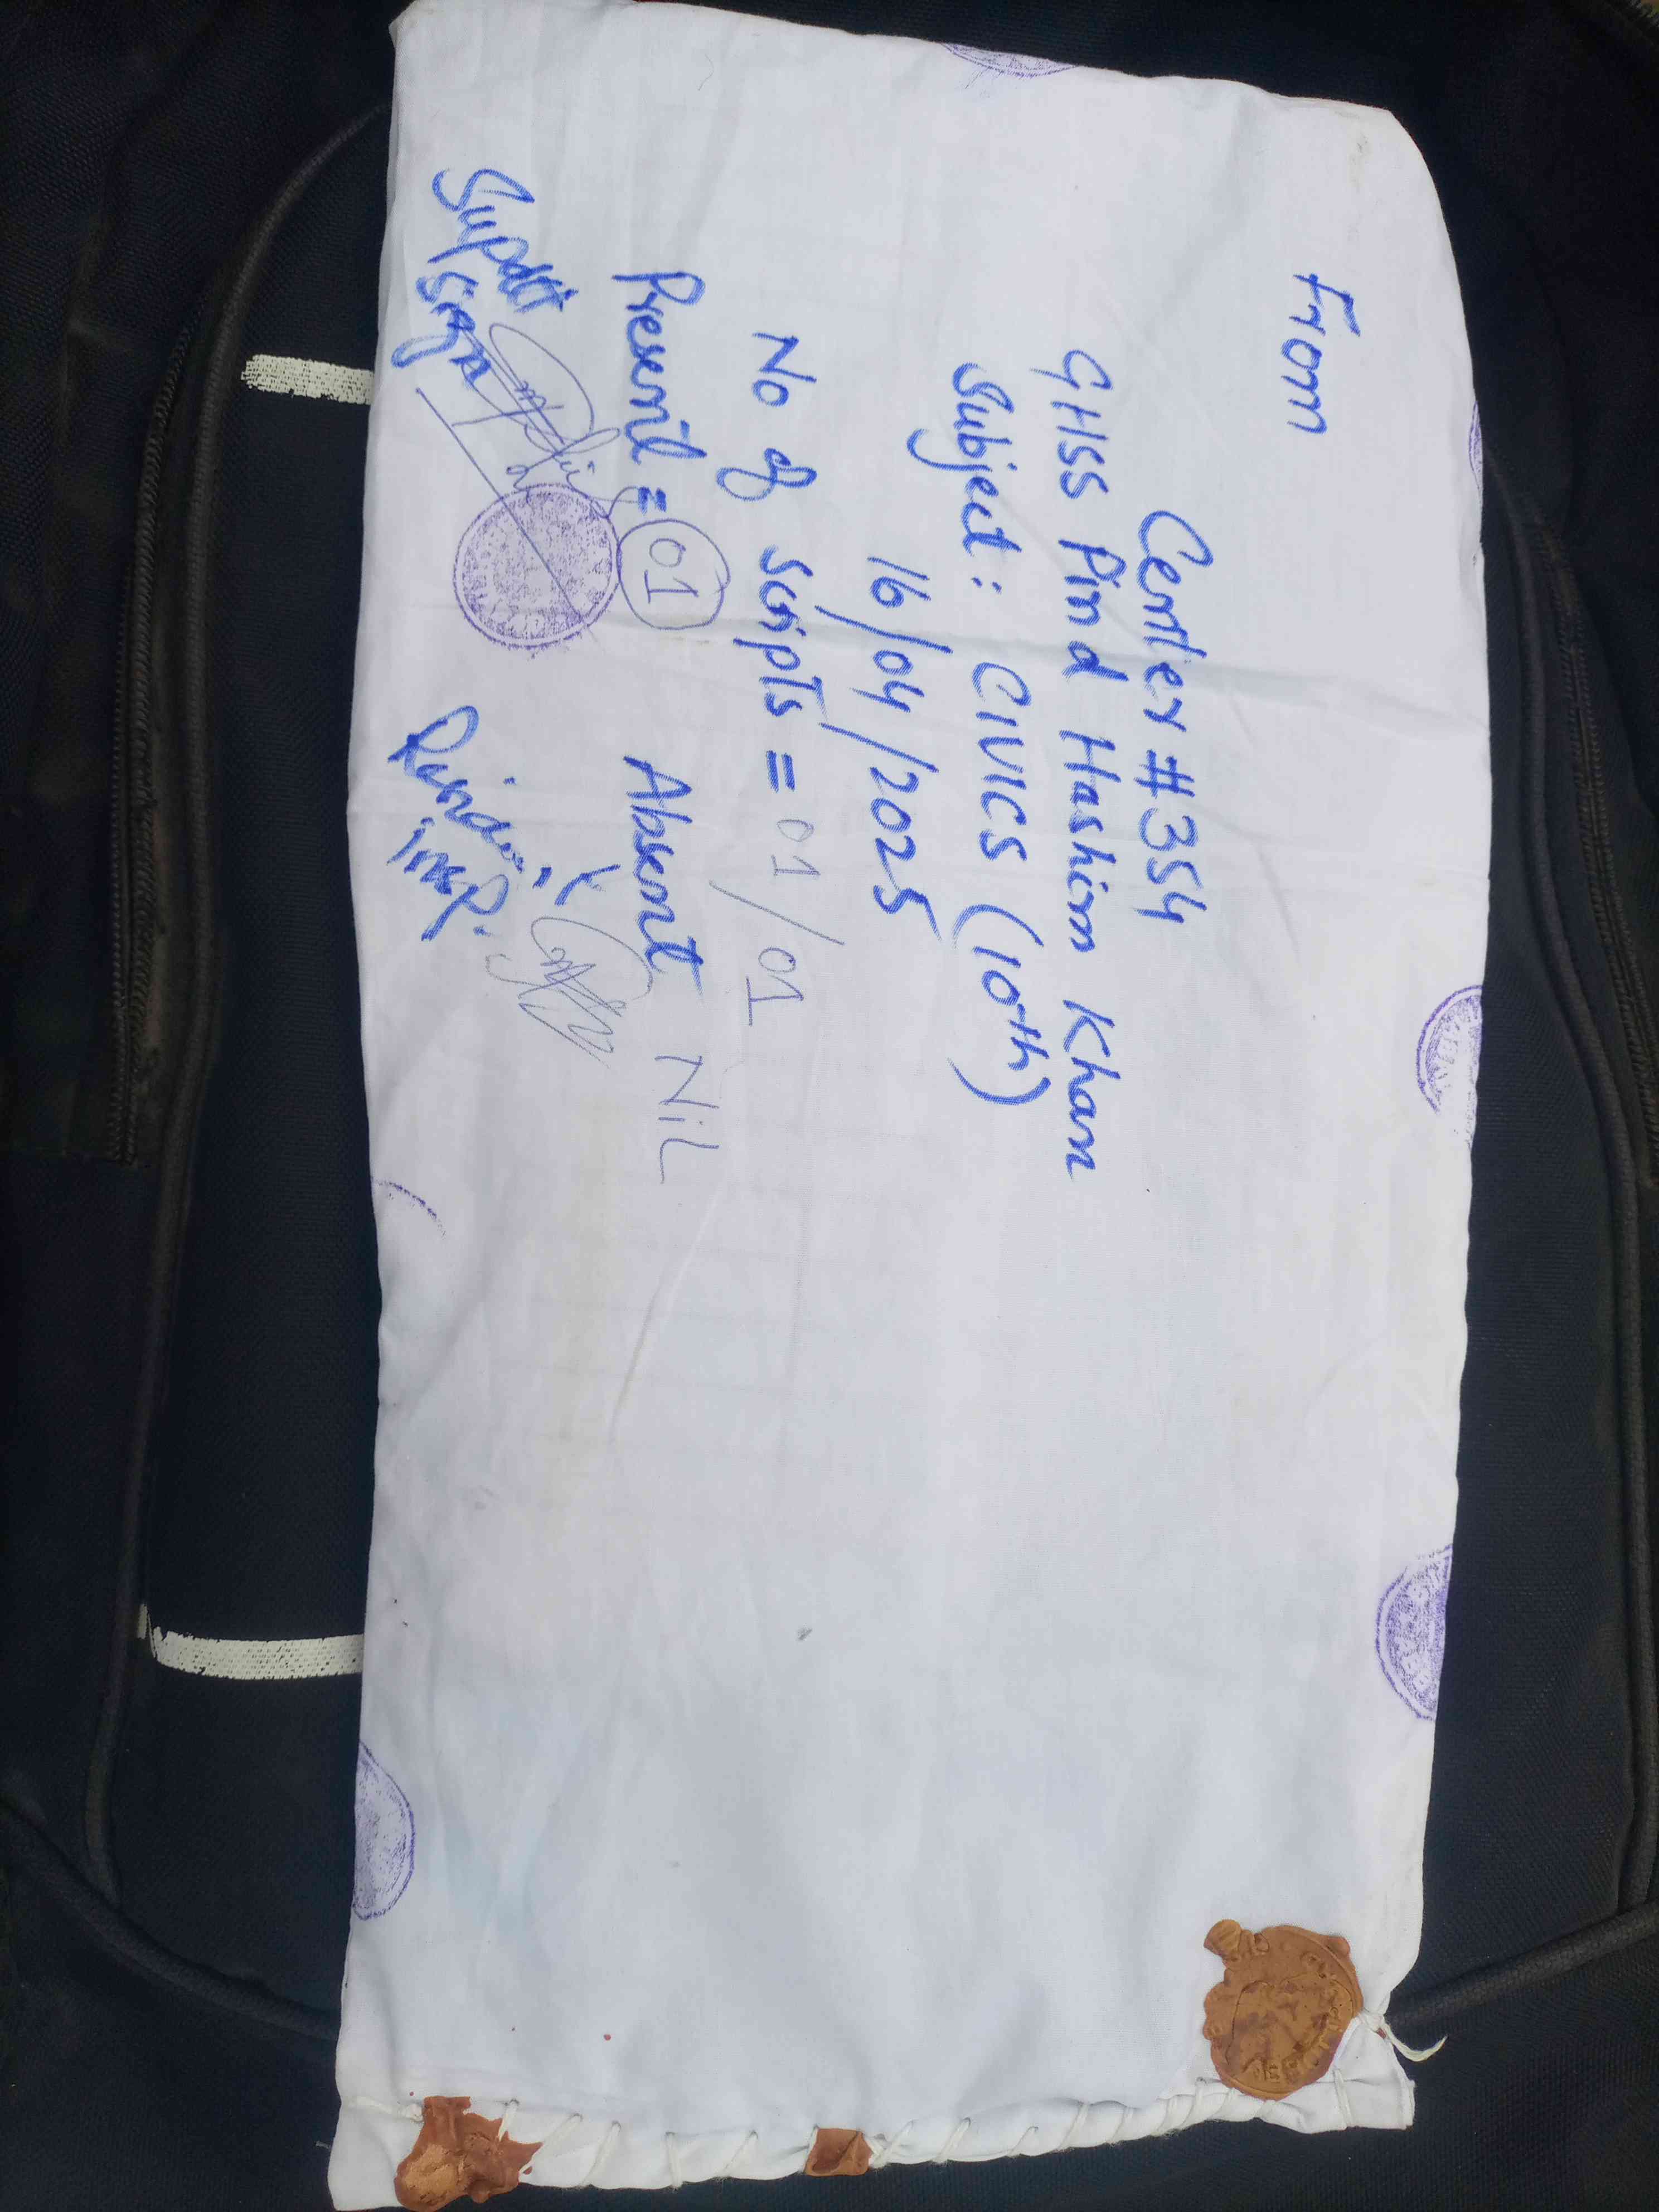 From
Center #354
GHSS Pind Hashim Khan
Subject: CIVICS (10th)
16/04/2025
No of scripts = 01/01
Present = 01 Absent NiL
Supdtt
Sign
Resident
Insp.